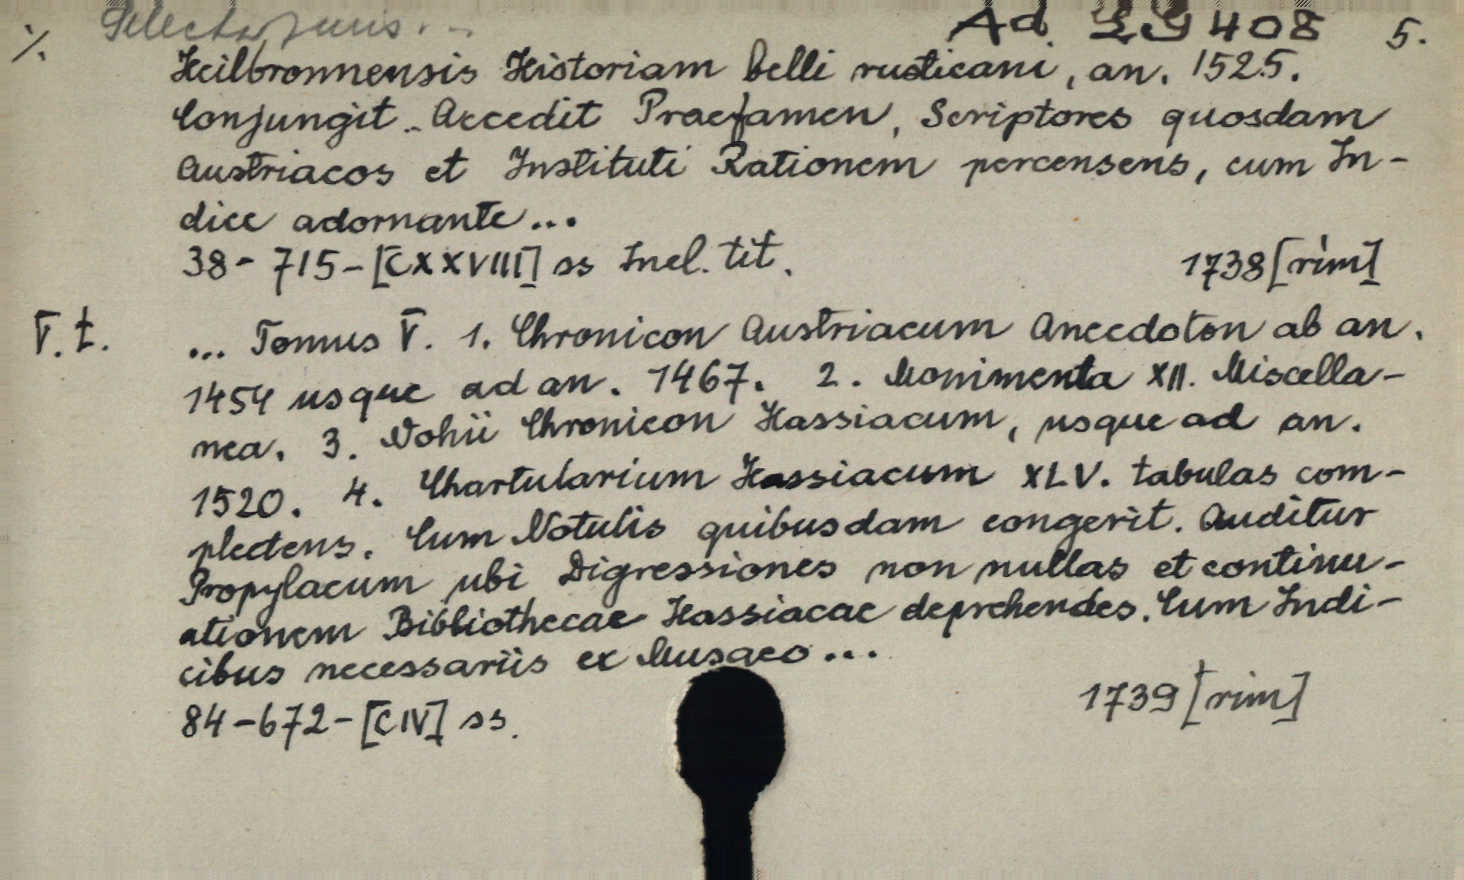 Selecta juris...
Ad. 29408 5.
%.
Heilbronnensis Historiam belli rusticani, an. 1525.
Conjungit.. Accedit Praefamen, Scriptores quosdam
Austriacos et Instituti Rationem percensens, cum In-
dice adornante...
38-715-[CXXVIII] ss Incl. tit. 1738[rim]
V. t. ... Tomus V. 1. Chronicon Austriacum Anecdoton ab an.
1454 usque ad an. 1467. 2. Monimenta XII. Miscella-
nea. 3. Nohii Chronicon Hassiacum, usque ad an.
1520. 4. Chartularium Hassiacum XLV. tabulas com-
plectens. Cum Notulis quibusdam congerit. Auditur
Propylaeum ubi Digressiones non nullas et continu-
ationem Bibliothecae Hassiacae deprehendes. Cum Indi-
cibus necessariis ex Musaeo...
84-672-[CIV] ss. 1739[rim]